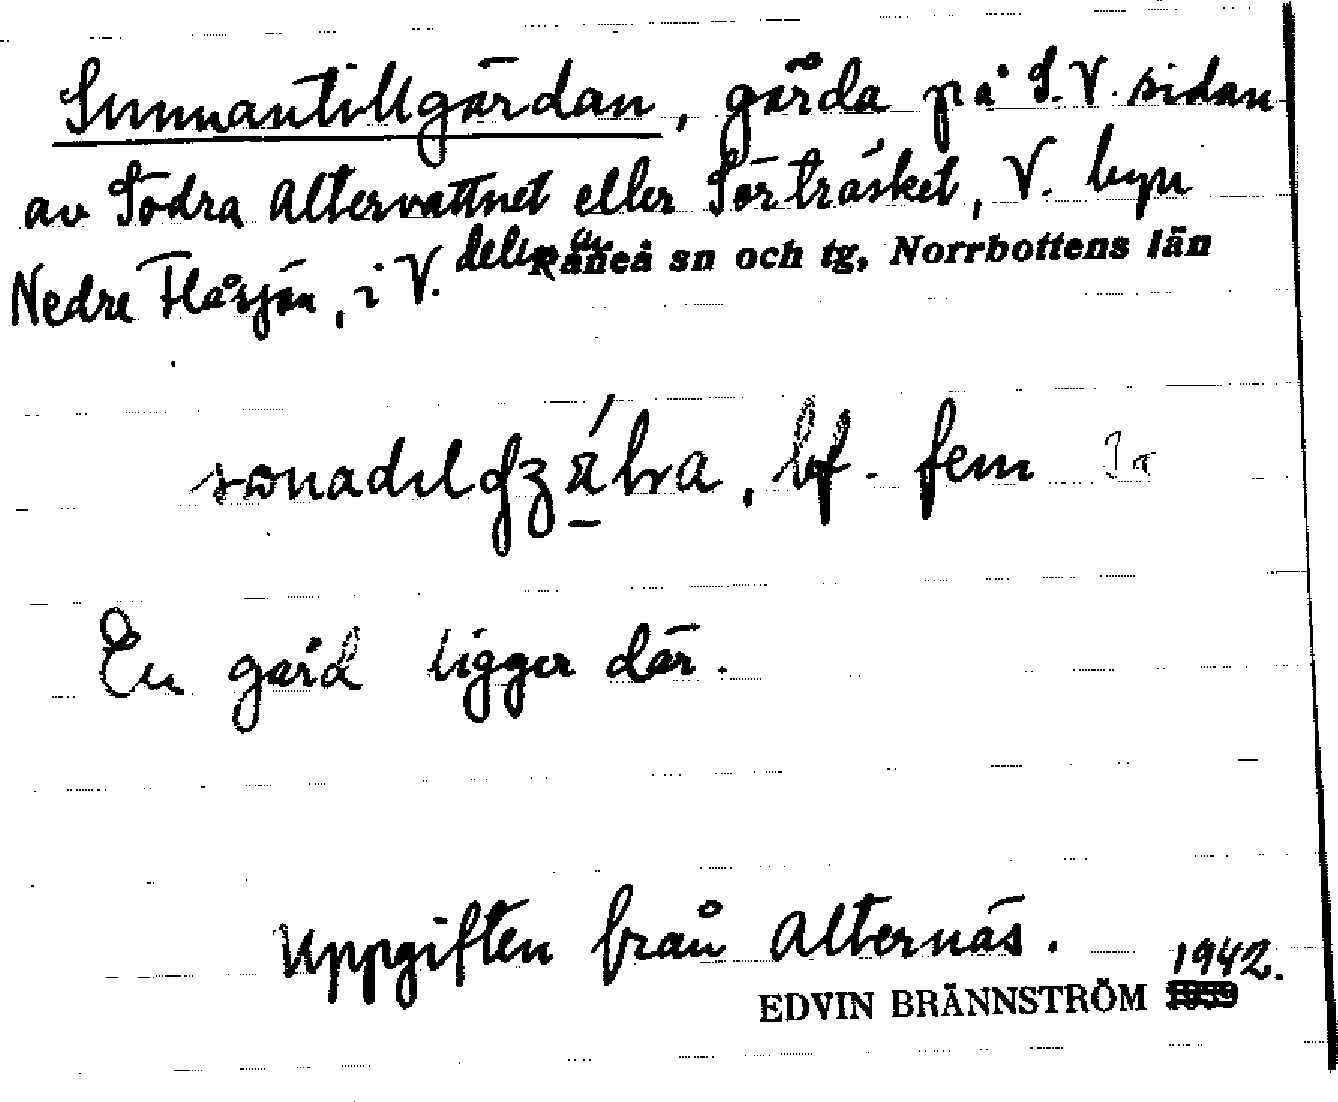 Sunnantillgärdan, gärda på S.V. sidan
av Södra Altervattnet eller Sörträsket, V. byn
Nedre Flåsjön, i V. delen av Råneå sn och tg, Norrbottens län
bf. fem
En gård ligger där.
Uppgiften från Alternäs.
1942.
EDVIN BRÄNNSTRÖM 1939